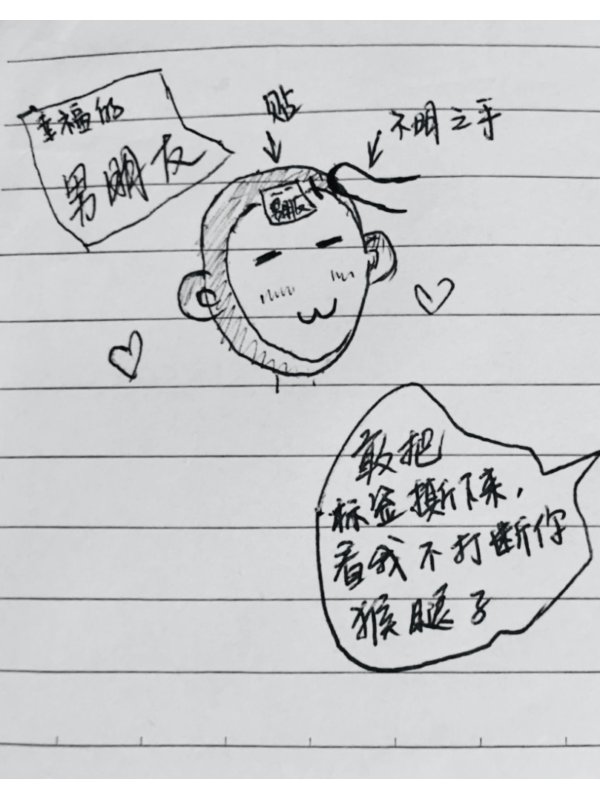 幸福的
男朋友
贴
不明之手
男朋友
敢把
标签撕下来，
看我不打断你
猴腿子